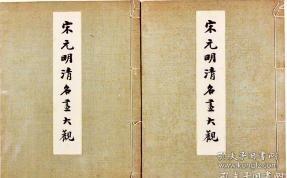 宋元明清名畫大觀
宋元明清名畫大觀